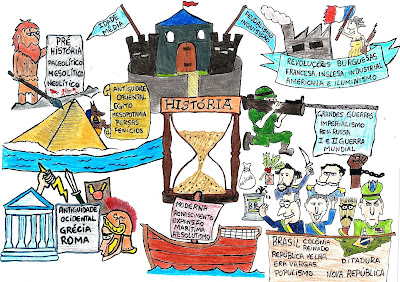 IDADE
MÉDIA
PRÉ
HISTÓRIA
PALEOLÍTICO
MESOLÍTICO
NEOLÍTICO
REVOLUÇÕES BURGUESAS
FRANCESA, INGLESA, INDUSTRIAL
AMERICANA E ILUMINISMO
ANTIGUIDADE
ORIENTAL
EGITO
MESOPOTÂMIA
PERSAS
FENÍCIOS
HISTÓRIA
GRANDES GUERRAS
IMPERIALISMO
REV. RUSSA
I E II GUERRA
MUNDIAL
ANTIGUIDADE
OCIDENTAL
GRÉCIA
ROMA
MODERNA
RENASCIMENTO
EXPANSÃO
MARÍTIMA
ABSOLUTISMO
BRASIL COLÔNIA
REINADO
REPÚBLICA VELHA
ERA VARGAS
POPULISMO
DITADURA
NOVA REPÚBLICA